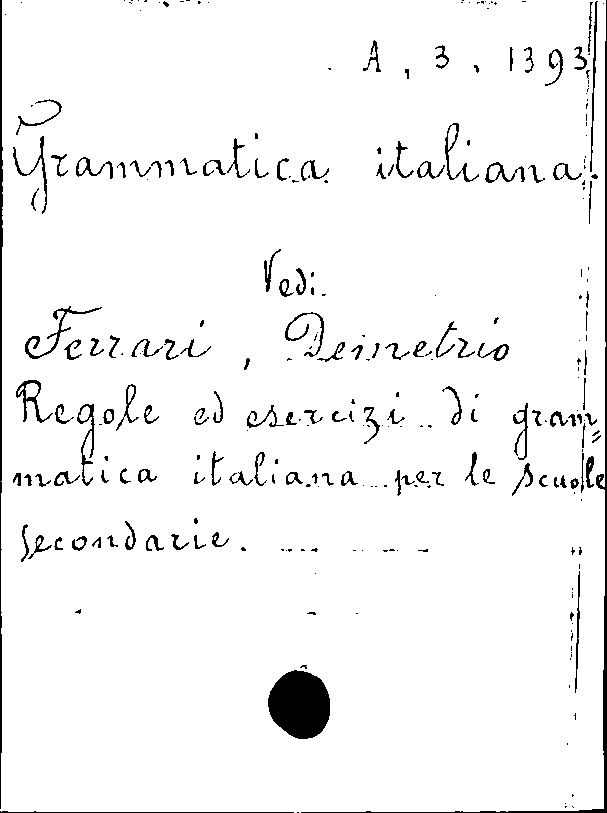 A, 3, 1393
Grammatica italiana.
Vedi.
Ferrari, Demetrio
Regole ed esercizi di gram=
matica italiana per le scuole
secondarie.